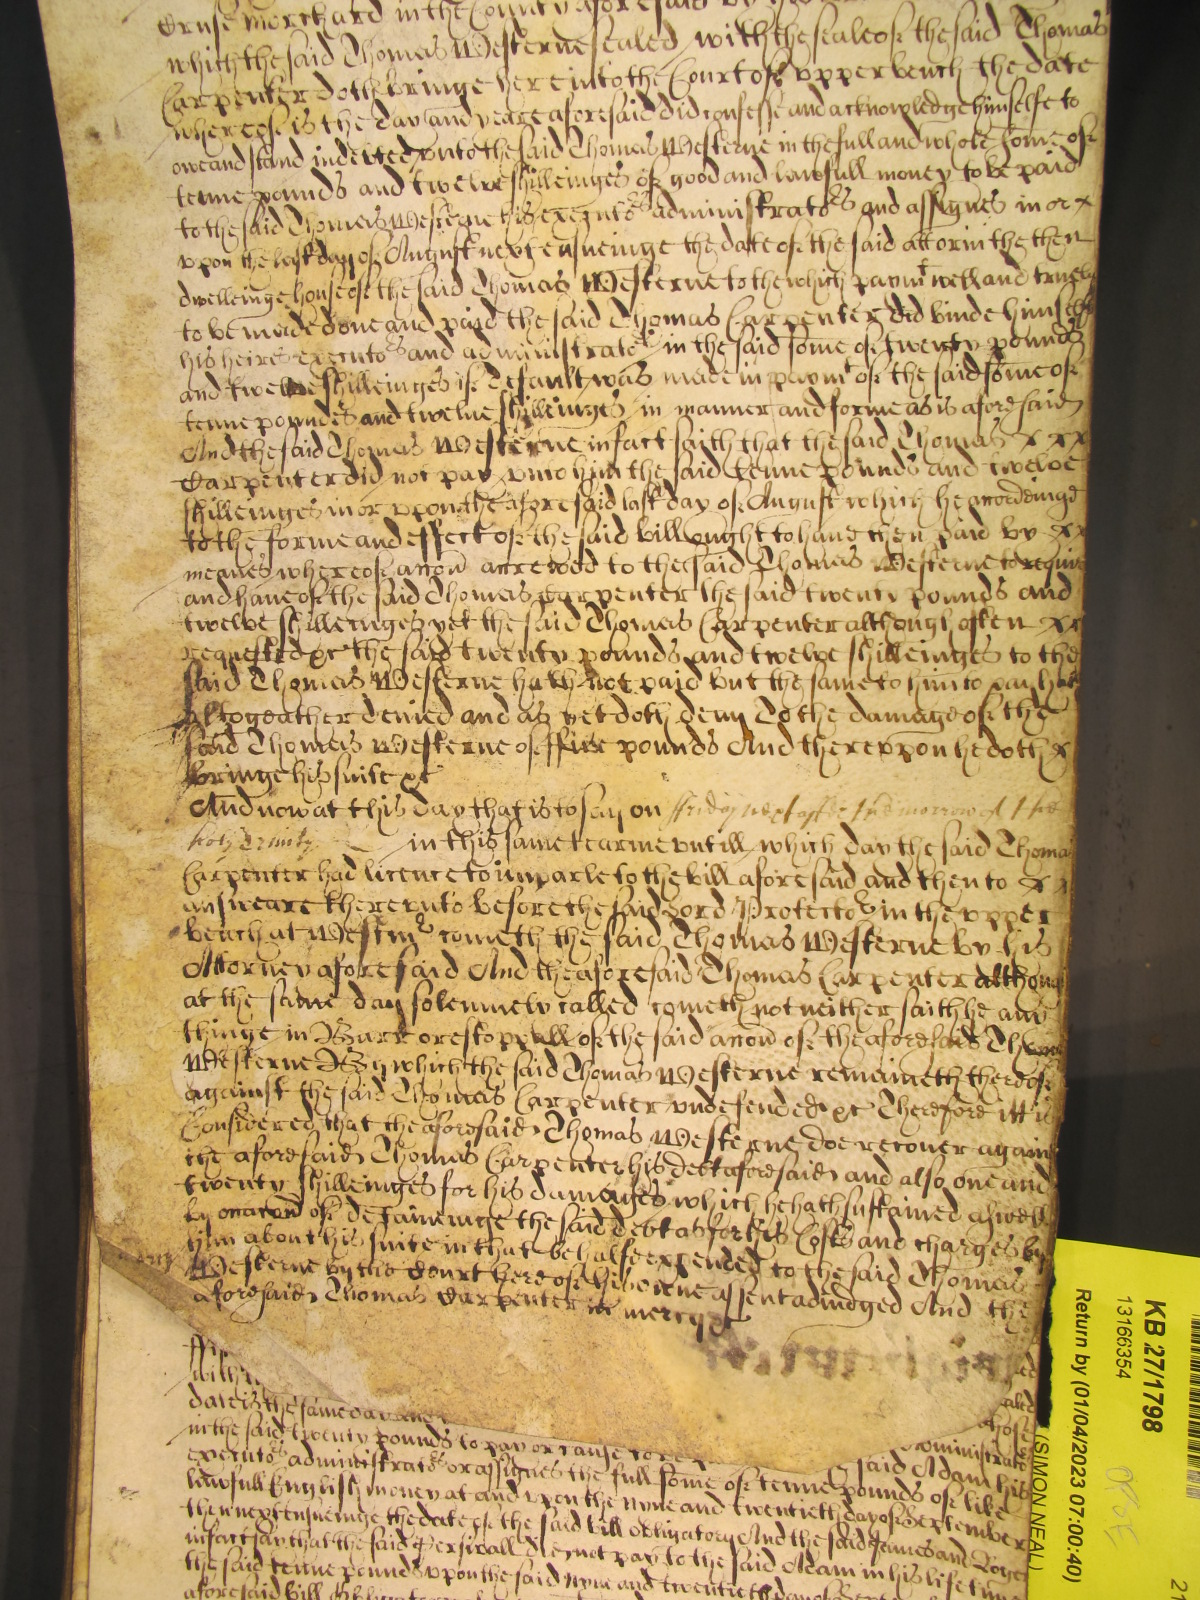 Cruse Morchard in the County aforesaid by his
which the said Thomas Westerne sealed with the seale of the said Thomas
Carpenter doth bringe here into the Court of upper bench the date
whereof is the day and yeare aforesaid did confesse and acknowledge himselfe to
owe and stand indebted unto the said Thomas Westerne in the full and whole some of
tenne pounds and twelve shilleinges of good and lawfull money to be paid
to the said Thomas Westerne his executors administrators and assignes in or x
upon the last day of August next ensueinge the date of the said att or in the then
dwelleinge house of the said Thomas Westerne to the which paymt well and truely
to be made done and paid the said Thomas Carpenter did binde himselfe
his heires executors and administrators in the said some of twenty pounds
and twelve shilleinges if default was made in paymt of the said some of
tenne pounds and twelve shilleinges in manner and forme as is aforesaid
And the said Thomas Westerne in fact saith that the said Thomas x xx
Carpenter did not pay unto him the said tenne pounds and twelve
shilleinges in or upon the aforesaid last day of August which he accordeinge
to the forme and effect of the said bill ought to have then paid by xx
meanes whereof accon accrewed to the said Thomas Westerne to require
and have of the said Thomas Carpenter the said twenty pounds and
twelve shilleinges yet the said Thomas Carpenter although often xx
requested &c the said twenty pounds and twelve shilleinges to the
said Thomas Westerne hath not paid but the same to him to pay hath
altogeather denied and as yet doth deny To the damage of the
said Thomas Westerne of ffive pounds And thereupon he doth x
bringe his suite &c
And now at this day that is to say on ffriday next after the morrow of the
holy Trinity in this same tearme untill which day the said Thomas
Carpenter had licence to imparle to the bill aforesaid and then to x x
answeare thereunto before the said Lord Protector in the upper
bench at Westmr cometh the said Thomas Westerne by his
Attorney aforesaid And the aforesaid Thomas Carpenter although
at the same day solemnely called cometh not neither saith he any
thinge in Barr or estoppell of the said accon of the aforesaid Thomas
Westerne By which the said Thomas Westerne remaineth therof
against the said Thomas Carpenter undefended &c Therefore itt is
Considered that the aforesaid Thomas Westerne doe recover against
the aforesaid Thomas Carpenter his debt aforesaid and also one and
twenty shilleinges for his damages which he hath sustained aswell
by occacon of detaineinge the said debt as for his Costs and charges by
him about his suite in that behalfe expended to the said Thomas
Westerne by the Court here of his owne assent adiudged And the
aforesaid Thomas Carpenter in mercy &c
date is the same day and
in the said twenty pounds to pay or cause to be said Adam his
executors administrators or assignes the full some of tenne pounds of like
lawfull English money at and upon the nyne and twentieth day of September
then next ensueinge the date of the said bill obligatory And the said James and Roger
in fact say that the said Persivall did not pay to the said Adam in his life time
the said tenne pounds upon the said nyne and twentieth day of
aforesaid bill
KB 27/1798
13166354
Return by (01/04/2023 07:00:40)
(SIMON NEAL)